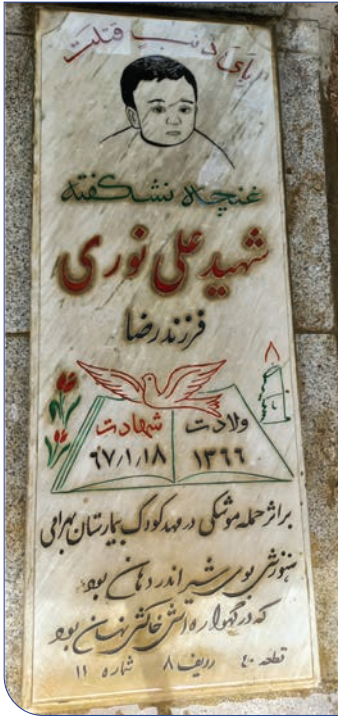 بای ذنب قتلت
غنچه نشکفته
شهید علی نوری
فرزند رضا
ولادت شهادت
۱۳۶۶ ۶۷/۱/۱۸
بر اثر حمله موشکی در مهد کودک بیمارستان بهرامی
هنوزش بوی شیر اندر دهان بود
که در گهواره آتش خاکش نهان بود
قطعه ۴۰ ردیف ۸ شماره ۱۱